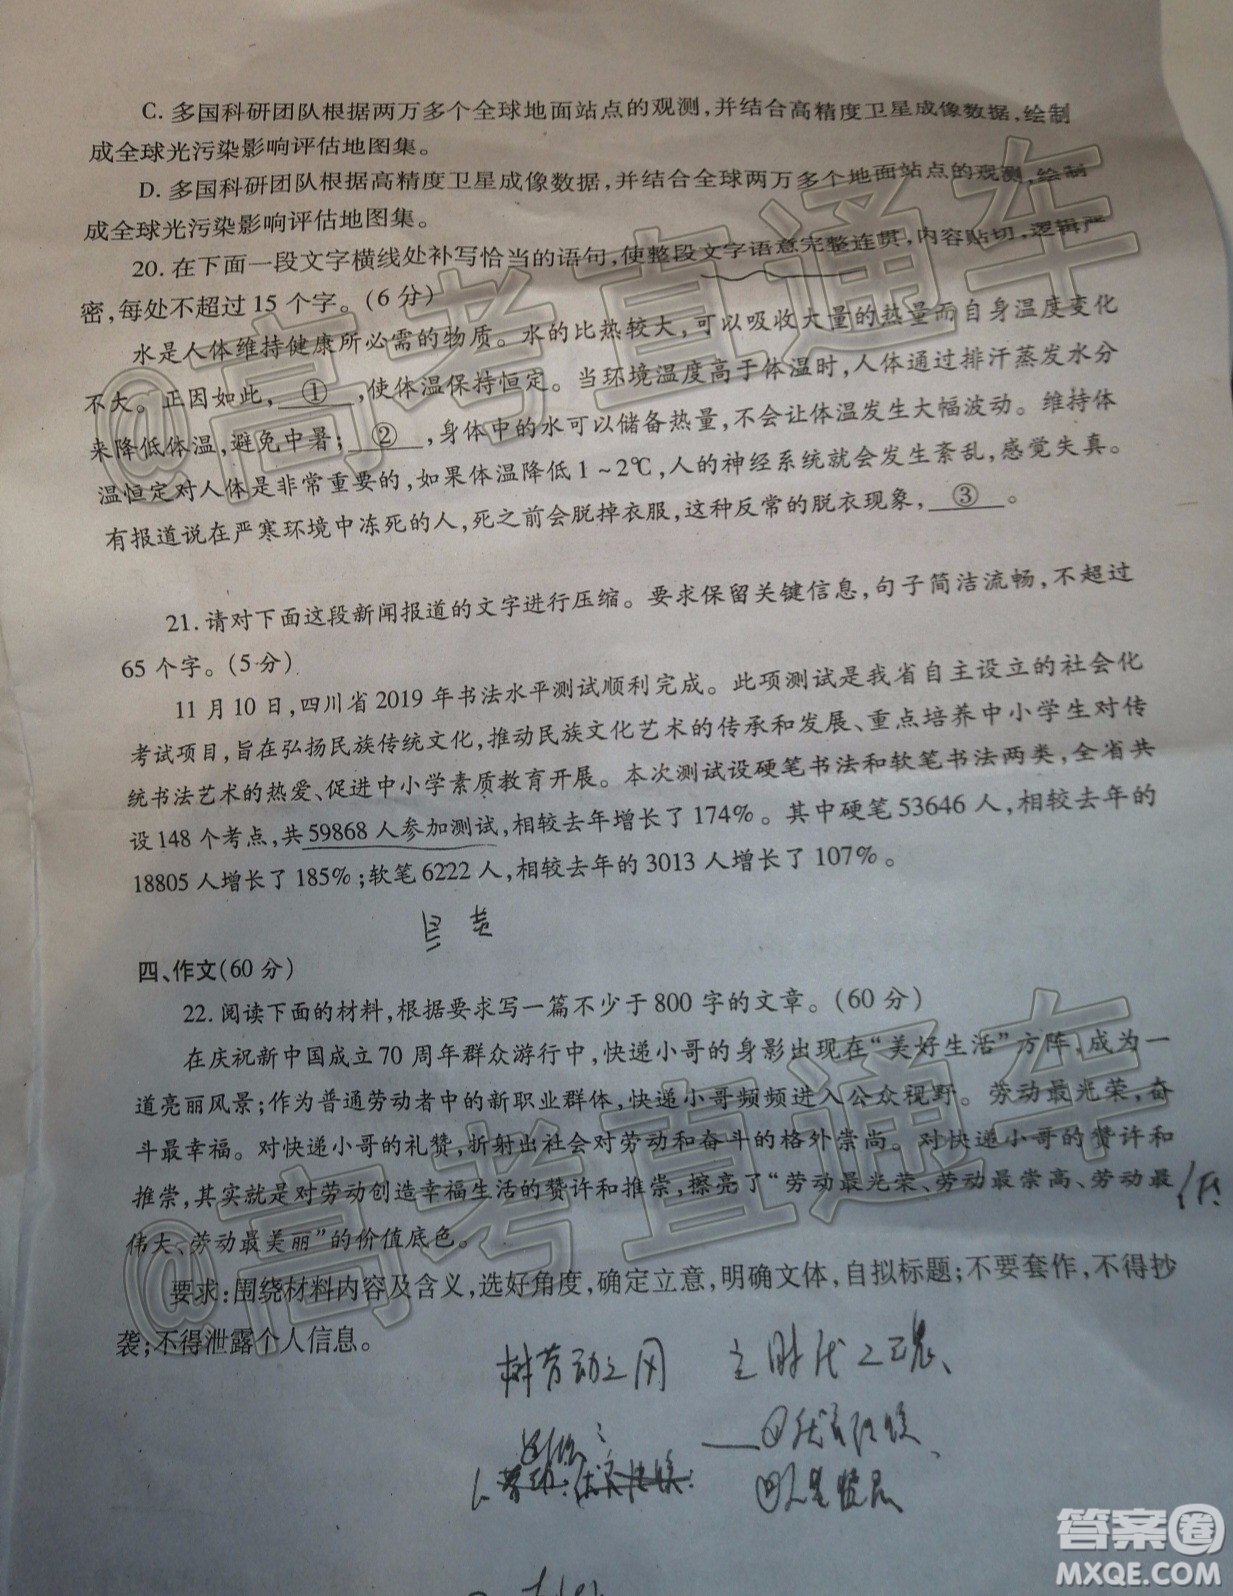 C. 多国科研团队根据两万多个全球地面站点的观测,并结合高精度卫星成像数据,绘制
成全球光污染影响评估地图集。
D. 多国科研团队根据高精度卫星成像数据,并结合全球两万多个地面站点的观测,绘制
成全球光污染影响评估地图集。
20. 在下面一段文字横线处补写恰当的语句,使整段文字语意完整连贯,内容贴切,逻辑严
密,每处不超过 15 个字。(6 分)
水是人体维持健康所必需的物质。水的比热较大,可以吸收大量的热量而自身温度变化
不大。正因如此, ① ,使体温保持恒定。当环境温度高于体温时,人体通过排汗蒸发水分
来降低体温,避免中暑; ② ,身体中的水可以储备热量,不会让体温发生大幅波动。维持体
温恒定对人体是非常重要的,如果体温降低 1~2℃,人的神经系统就会发生紊乱,感觉失真。
有报道说在严寒环境中冻死的人,死之前会脱掉衣服,这种反常的脱衣现象, ③ 。
21. 请对下面这段新闻报道的文字进行压缩。要求保留关键信息,句子简洁流畅,不超过
65 个字。(5 分)
11 月 10 日,四川省 2019 年书法水平测试顺利完成。此项测试是我省自主设立的社会化
考试项目,旨在弘扬民族传统文化,推动民族文化艺术的传承和发展、重点培养中小学生对传
统书法艺术的热爱、促进中小学素质教育开展。本次测试设硬笔书法和软笔书法两类,全省共
设 148 个考点,共 59868 人参加测试,相较去年增长了 174%。其中硬笔 53646 人,相较去年的
18805 人增长了 185%;软笔 6222 人,相较去年的 3013 人增长了 107%。
四、作文(60 分)
22. 阅读下面的材料,根据要求写一篇不少于 800 字的文章。(60 分)
在庆祝新中国成立 70 周年群众游行中,快递小哥的身影出现在“美好生活”方阵,成为一
道亮丽风景;作为普通劳动者中的新职业群体,快递小哥频频进入公众视野。劳动最光荣,奋
斗最幸福。对快递小哥的礼赞,折射出社会对劳动和奋斗的格外崇尚。对快递小哥的赞许和
推崇,其实就是对劳动创造幸福生活的赞许和推崇,擦亮了“劳动最光荣、劳动最崇高、劳动最
伟大、劳动最美丽”的价值底色。
要求:围绕材料内容及含义,选好角度,确定立意,明确文体,自拟标题;不要套作,不得抄
袭;不得泄露个人信息。
树劳动之风
@高考直通车
@高考直通车
答案圈
MXQE.COM